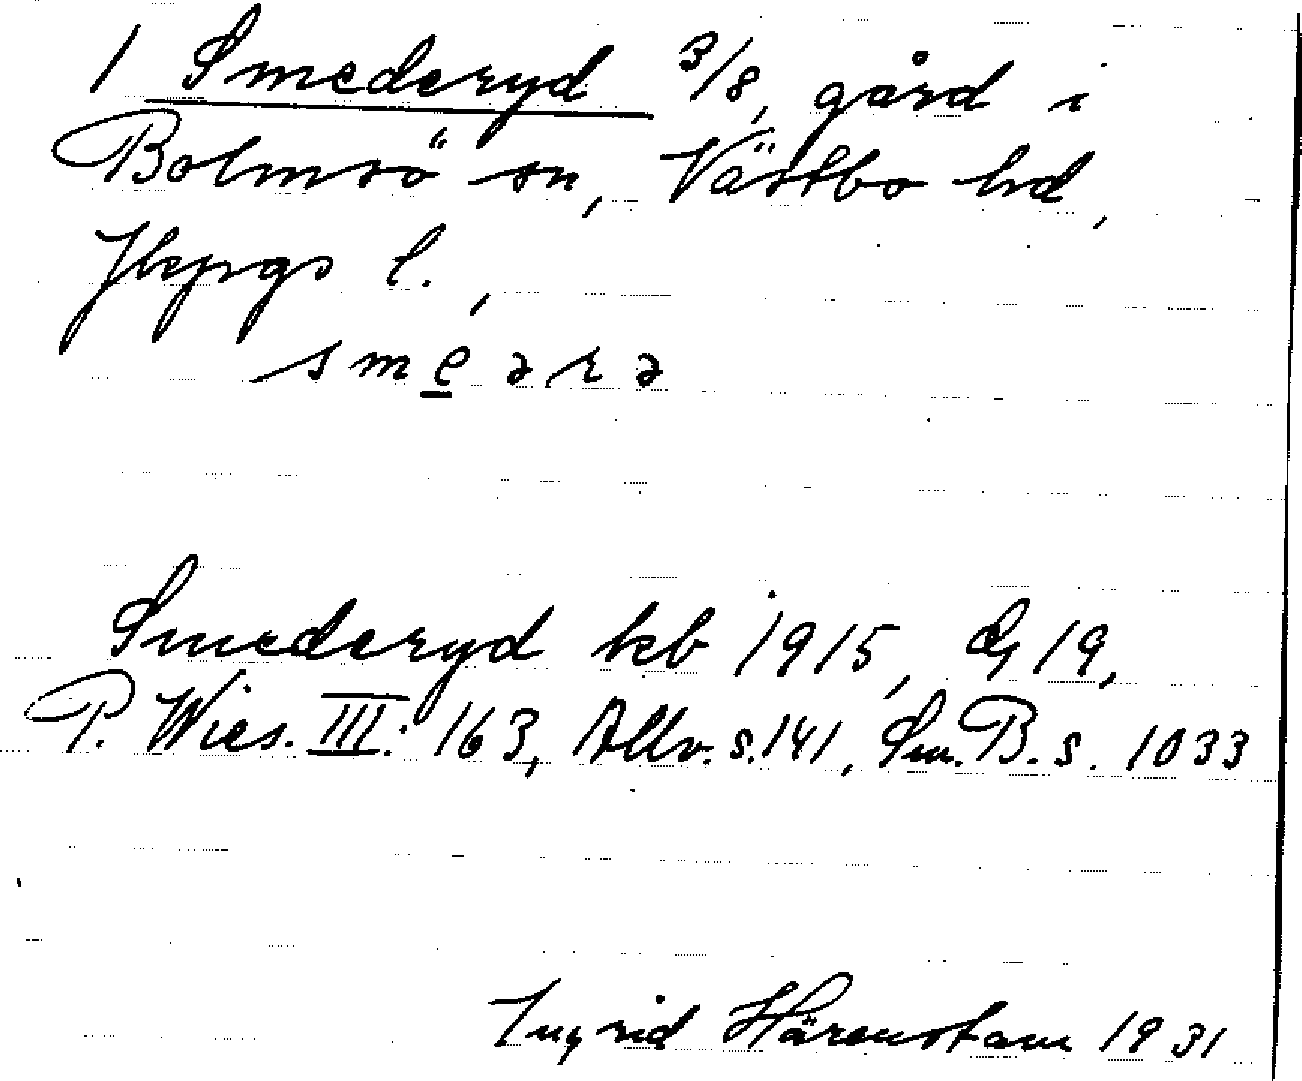 1 Smederyd 3/8, gård i
Bolmsö sn, Västbo hd,
Jkpgs l.,
smeərə
Smederyd kb 1915, G 19,
P. Wies. III: 163, Allv. s. 141, Sm. B. s. 1033
Ingrid Härenstam 1931